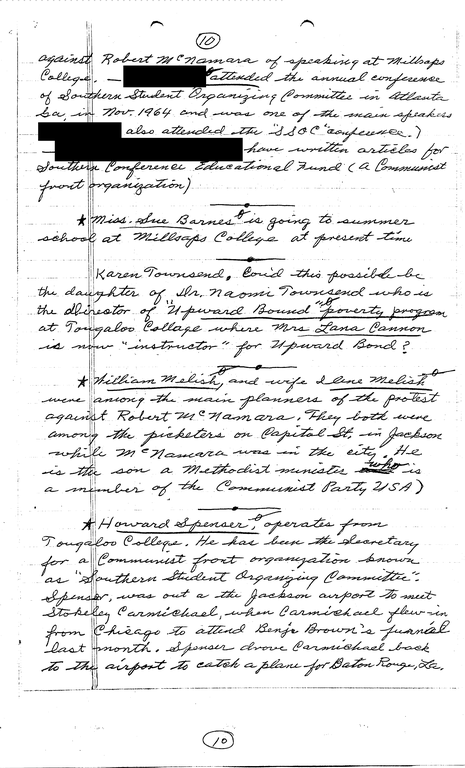 10
against Robert McNamara of speaking at Millsaps
College. — attended the annual conference
of Southern Student Organizing Committee in Atlanta
Ga, in Nov. 1964 and was one of the main speakers
also attended the "SSOC" conference.)
— have written articles for
Southern Conference Educational Fund (A Communist
front organization)
★ Miss. Sue Barnes is going to summer
school at Millsaps College at present time
Karen Townsend. Could this possible be
the daughter of Dr. Naomi Townsend who is
the Director of "Upward Bound" poverty program
at Tougaloo Collage where Mrs Lana Cannon
is now "instructor" for Upward Bond?
★ William Melish, and wife Ilene Melish
were among the main planners of the protest
against Robert McNamara. They both were
among the picketers on Capitol St. in Jackson
while McNamara was in the city. He
is the son a Methodist minister who is
a member of the Communist Party USA)
★ Howard Spenser, operates from
Tougaloo College. He has been the Secretary
for a Communist front organization known
as "Southern Student Organizing Committee".
Spenser, was out a the Jackson airport to meet
Stokeley Carmichael, when Carmichael flew in
from Chicago to attend Benje Brown's funeral
last month. Spenser drove Carmichael back
to the airport to catch a plane for Baton Rouge, La.
10